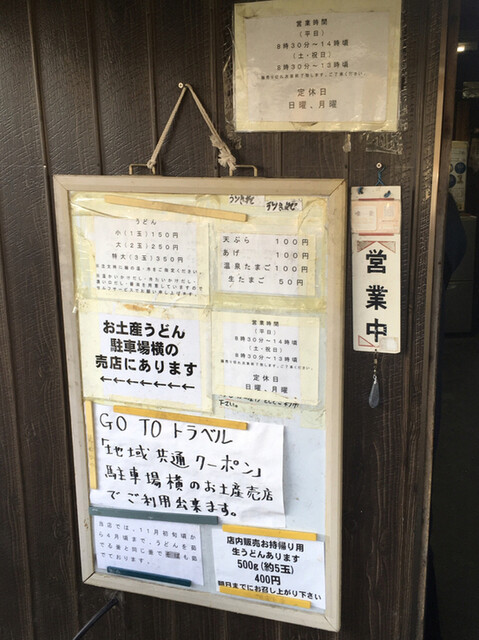 営業時間
(平日)
8時30分〜14時頃
(土・祝日)
8時30分〜13時頃
定休日
日曜、月曜
うどん
小(1玉)150円
大(2玉)250円
特大(3玉)350円
天ぷら 100円
あげ 100円
温泉たまご 100円
生たまご 50円
営業中
お土産うどん
駐車場横の
売店にあります
←←←←←←←
営業時間
(平日)
8時30分〜14時頃
(土・祝日)
8時30分〜13時頃
定休日
日曜、月曜
GO TOトラベル
「地域共通クーポン」
駐車場横のお土産売店
でご利用出来ます。
当店では、11月初旬頃か
ら4月頃まで、うどんを茹
でる釜と同じ釜で
ております。
店内販売お持帰り用
生うどんあります
500g(約5玉)
400円
翌日までにお召し上がり下さい